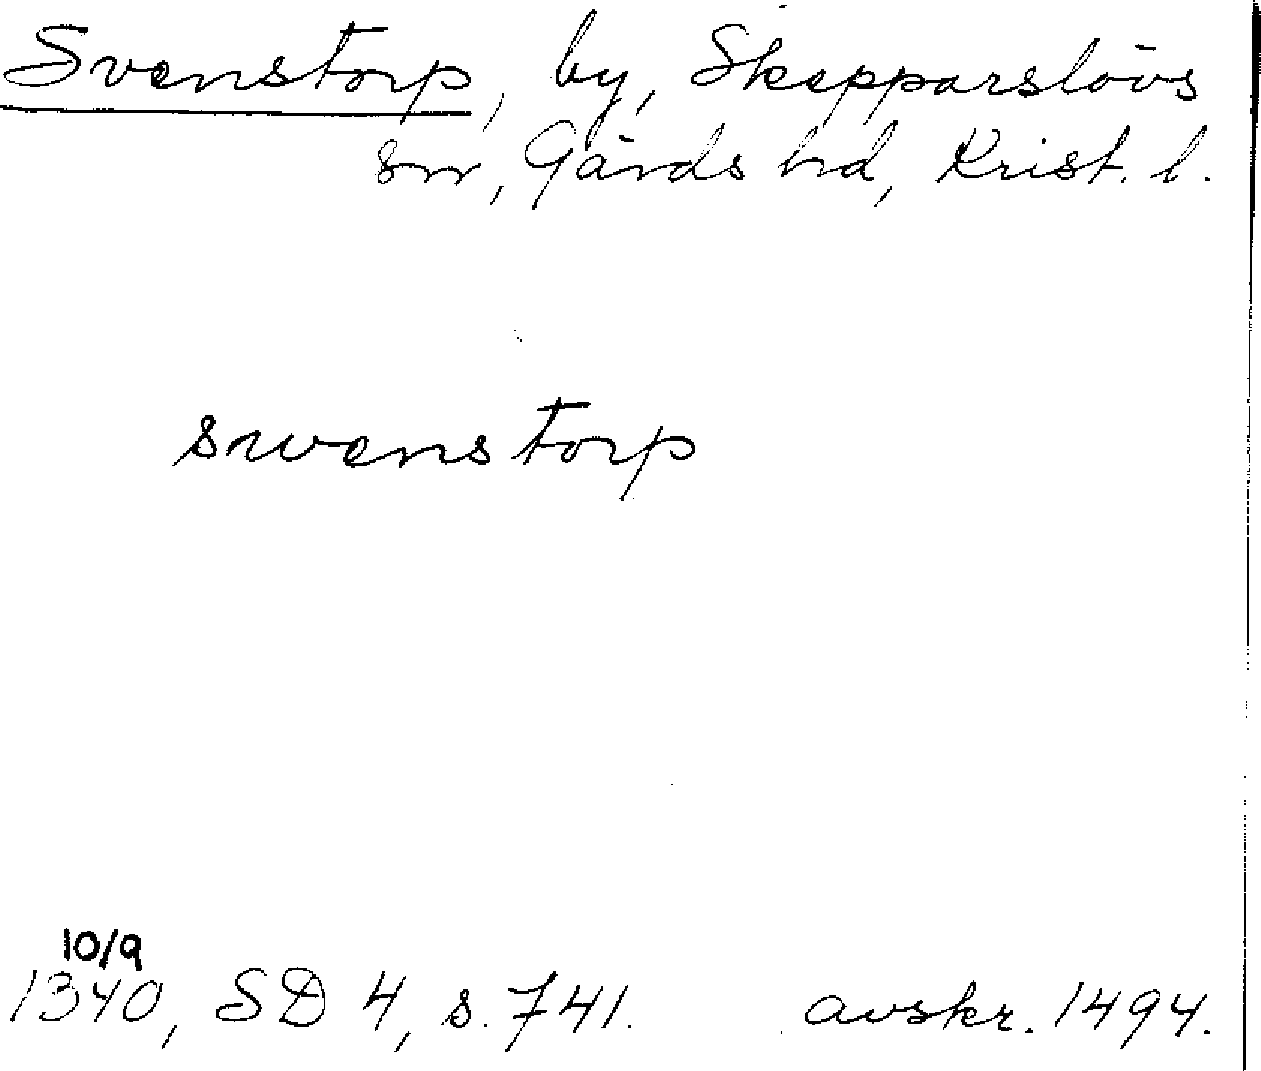 Svenstorp, by, Skepparslövs
sn, Gärds hd, Krist. l.
swenstorp
10/9
1340, SD 4, s. 741. avskr. 1494.